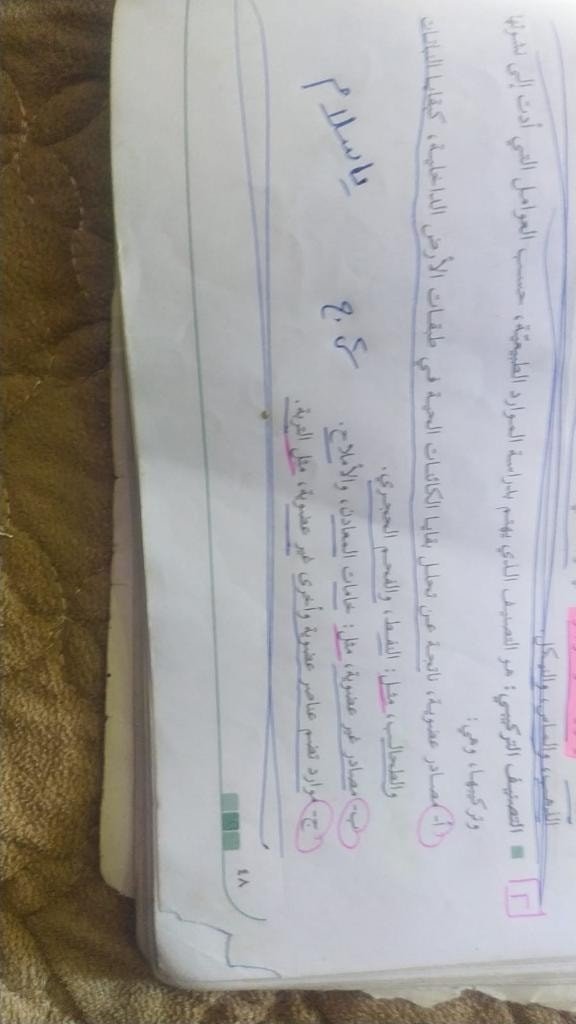 الذهب، والماس، والنيكل.
٢ ■ التصنيف التركيبي: هو التصنيف الذي يهتم بدراسة الموارد الطبيعية، حسب العوامل التي أدت إلى نشوئها
وتركيبها، وهي:
أ- مصادر عضوية، ناتجة عن تحلل بقايا الكائنات الحية في طبقات الأرض الداخلية، كبقايا النباتات
والطحالب، مثل: النفط، والفحم الحجري.
ب- مصادر غير عضوية، مثل: خامات المعادن، والأملاح.
ج- موارد تضم عناصر عضوية وأخرى غير عضوية، مثل التربة.
ياسلام
٤٨